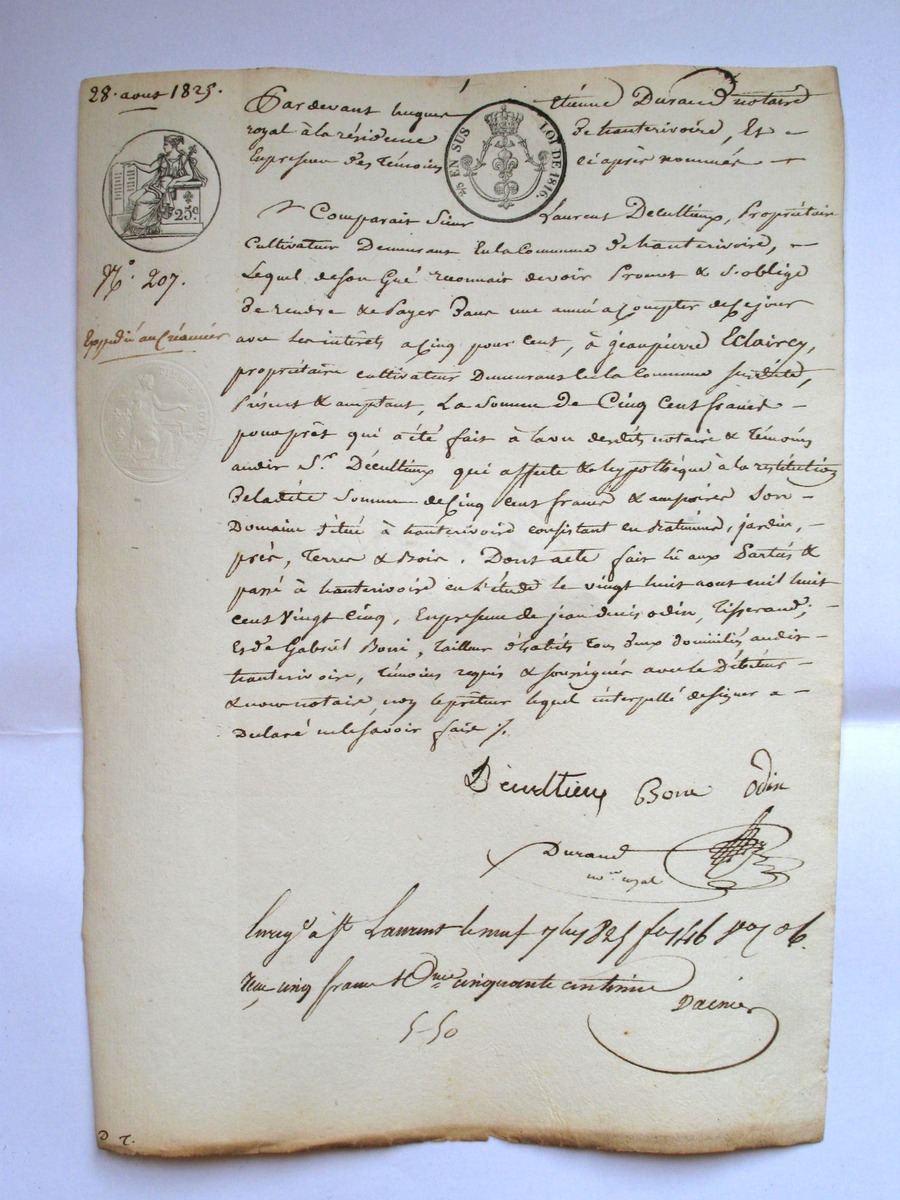 28. aoust 1825.
Pardevant hugues Etiénne Durand notaire
royal à la résidence de hauterivoire, Et
En presence des témoins ci après nommés
EN SUS LOI DE 1816.
25c
Comparait Sieur Laurent Décultieux, Propriétaire
Cultivateur Demeurant En la Commune de hauterivoire,
N° 207.
Lequel de son Gré reconnait devoir Promet & s'oblige
De rendre & Payer Dans une année a Compter de ce jour
Expédié au Créancier
avec les intérêts a Cinq pour Cent, à jeanpierre Eclaircy,
propriétaire cultivateur Demeurant En la Commune susdite,
Présent & acceptant, La Somme de Cinq Cent francs
pour prêt qui a été fait à la vue desdits notaire & témoins
audit Sr. Décultieux qui affecte & hypothèque à la restitution
De ladite Somme de Cinq cent francs & accessoires Son
Domaine Situé à hauterivoire consistant en Batiments, jardin,
prés, Terres & Bois. Dont acte fait lu aux Parties &
passé à hauterivoire en l'étude le vingt huit aout mil huit
Cent Vingt Cinq, En presence de jean denis odin, Tisserand;
Et de Gabriël Boni, Tailleur d'habits tous deux domiciliés audit
hauterivoire, témoins requis & soussignés avec le Débiteur
& nous notaire, non le prêteur lequel interpellé de signer a
Declaré ne le savoir faire
Décultieux Boni Odin
Durand
nre. royal
Enregé à St Laurent le neuf 7bre 1825 fo 146
reçu cinq francs & Dme cinquante centimes
Dacier
5-50